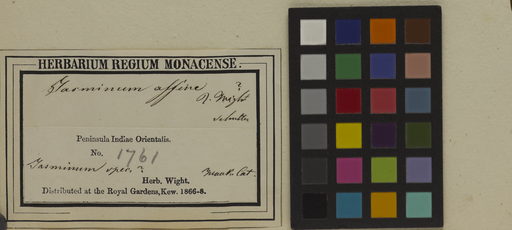 HERBARIUM REGIUM MONACENSE.
Jasminum affine ?
R. Wight
Peninsula Indiae Orientalis.
No. 1761
Jasminum spec. ?
Herb. Wight.
Distributed at the Royal Gardens, Kew. 1866-8.